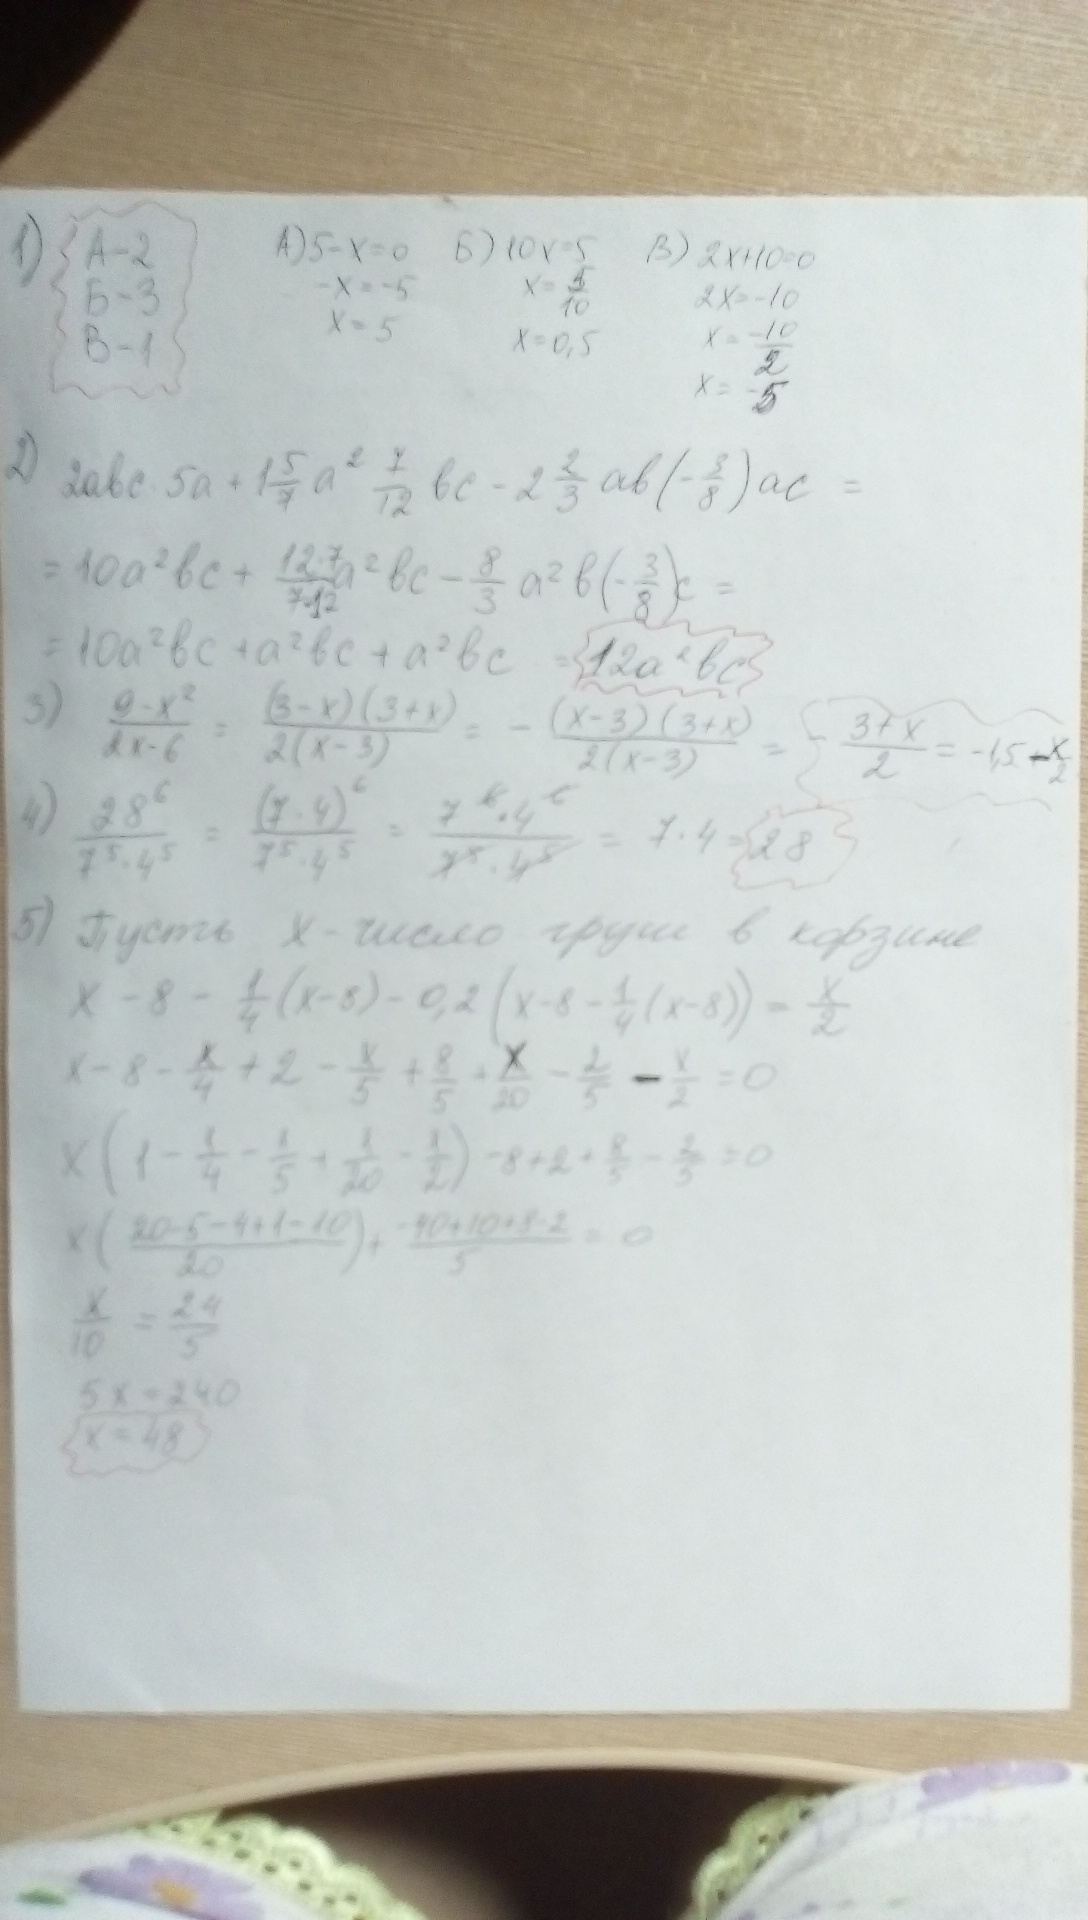 1) А-2
Б-3
В-1
А) 5-x=0
-x=-5
x=5
Б) 10x=5
x=5/10
x=0,5
В) 2x+10=0
2x=-10
x=-10/2
x=-5
2) 2abc·5a+1 5/7 a² 7/12 bc - 2 2/3 ab(-3/8)ac =
= 10a²bc + 12·7/7·12 a²bc - 8/3 a²b(-3/8)c =
= 10a²bc + a²bc + a²bc = 12a²bc
3) 9-x²/2x-6 = (3-x)(3+x)/2(x-3) = - (x-3)(3+x)/2(x-3) = - 3+x/2 = -1,5 - x/2
4) 28⁶/7⁵·4⁵ = (7·4)⁶/7⁵·4⁵ = 7⁶·4⁶/7⁵·4⁵ = 7·4 = 28
5) Пусть x - число груш в корзине
x - 8 - 1/4(x-8) - 0,2(x-8-1/4(x-8)) = x/2
x - 8 - x/4 + 2 - x/5 + 8/5 + x/20 - 2/5 - x/2 = 0
x(1 - 1/4 - 1/5 + 1/20 - 1/2) - 8 + 2 + 8/5 - 2/5 = 0
x(20-5-4+1-10/20) + -40+10+8-2/5 = 0
x/10 = 24/5
5x=240
x=48